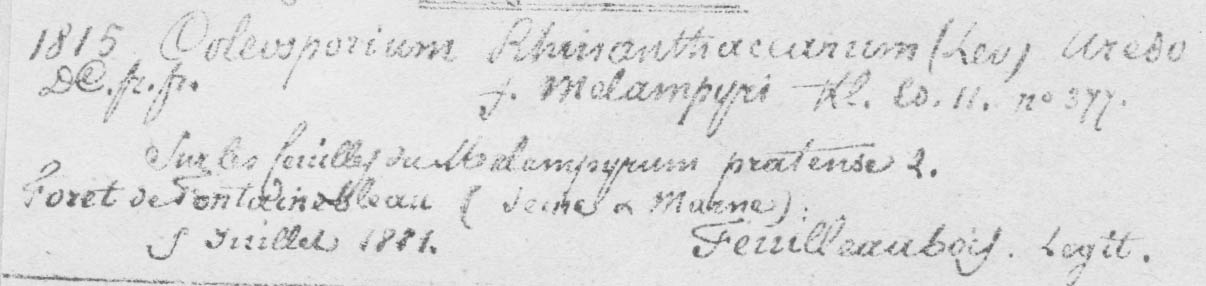 1815 Coleosporium Rhinanthacearum (Lev) Uredo
DC. fr. fr. f. Melampyri Kl. Ed. II. no 377.
Sur les feuilles du Melampyrum pratense L.
Foret de Fontainebleau (Seine & Marne).
5 Juillet 1881. Feuilleaubois. Legit.